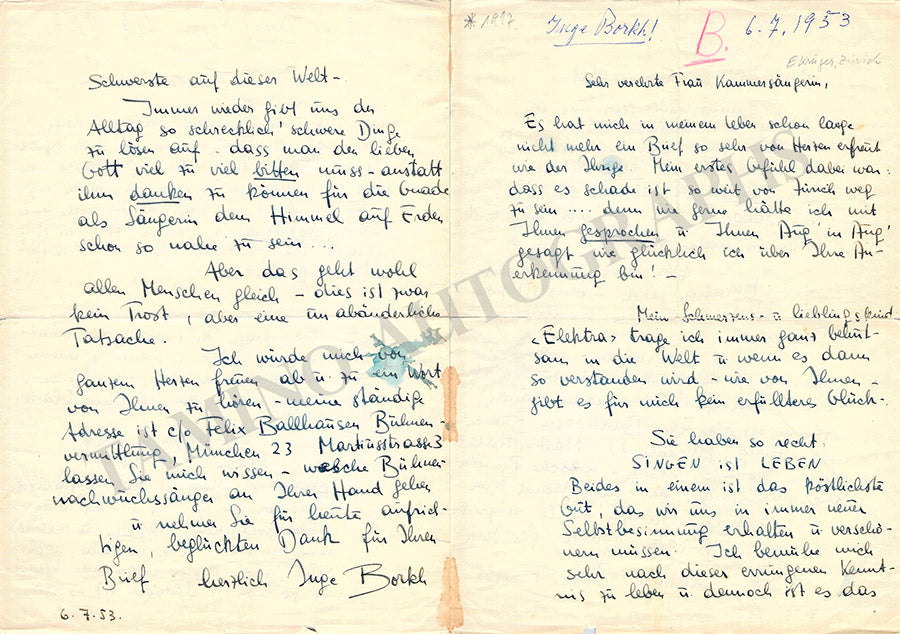 * 1917
Inge Borkh!
B.
6.7.1953
E Krüger, Zürich
Sehr verehrte Frau Kammersängerin,
Es hat mich in meinem Leben schon lange
nicht mehr ein Brief so sehr von Herzen erfreut
wie der Ihrige. Mein erstes Gefühl dabei war:
dass es schade ist so weit von Zürich weg
zu sein .... denn wie gerne hätte ich mit
Ihnen gesprochen u Ihnen Aug' in Aug'
gesagt wie glücklich ich über Ihre An-
erkennung bin! -
Mein Schmerzens- u lieblingskind
<Elektra> trage ich immer ganz behut-
sam in die Welt u wenn es dann
so verstanden wird - wie von Ihnen -
gibt es für mich kein erfüllteres Glück-.
Sie haben so recht:
SINGEN ist LEBEN
Beides in einem ist das köstlichste
Gut, das wir uns in immer neuer
Selbstbesinnung erhalten u verschö-
nern müssen. Ich bemühe mich
sehr nach dieser errungenen Kennt-
nis zu leben u dennoch ist es das
Schwerste auf dieser Welt-.
Immer wieder gibt uns der
Alltag so schrecklich schwere Dinge
zu lösen auf - dass man den lieben
Gott viel zu viel bitten muss - anstatt
ihm danken zu können für die Gnade
als Sängerin dem Himmel auf Erden
schon so nahe zu sein ...
Aber das geht wohl
allen Menschen gleich - dies ist zwar
kein Trost, aber eine unabänderliche
Tatsache.
Ich würde mich von
ganzem Herzen freuen ab u. zu ein Wort
von Ihnen zu hören - meine ständige
Adresse ist c/o Felix Ballhausen Bühnen-
vermittlung, München 23 Martiusstrasse 3
lassen Sie mich wissen - welche Bühnen
nachwuchssänger an Ihrer Hand gehen
u nehmen Sie für heute aufrich-
tigen, beglückten Dank für Ihren
Brief herzlich Inge Borkh
6.7.53.
TAMINO AUTOGRAPHS